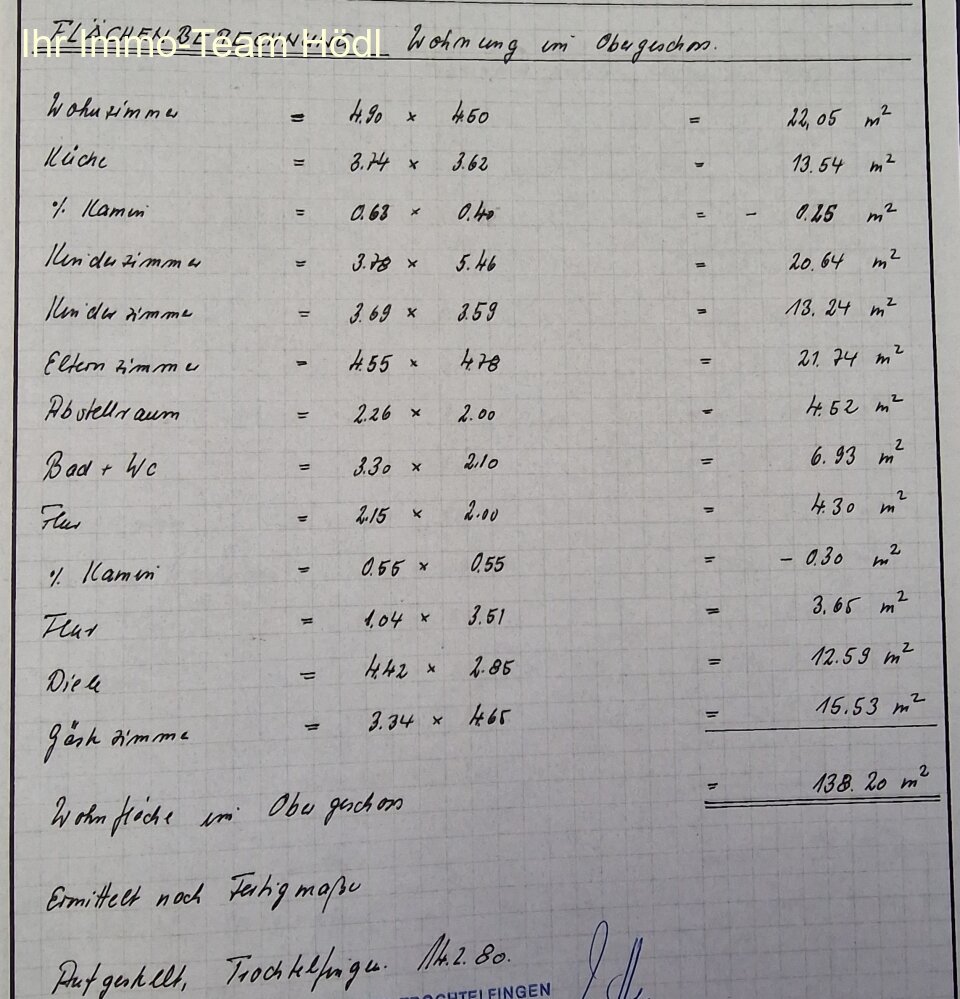 FLÄCHENBERECHNUNG Wohnung im Obergeschoss.
Ihr Immo-Team Hödl
Wohnzimmer = 4.90 × 4.50 = 22,05 m²
Küche = 3.74 × 3.62 = 13.54 m²
% Kamin = 0.63 × 0.40 = - 0.25 m²
Kinderzimmer = 3.78 × 5.46 = 20.64 m²
Kinderzimmer = 3.69 × 3.59 = 13.24 m²
Elternzimmer = 4.55 × 4.78 = 21.74 m²
Abstellraum = 2.26 × 2.00 = 4.52 m²
Bad + Wc = 3.30 × 2.10 = 6.93 m²
Flur = 2.15 × 2.00 = 4.30 m²
% Kamin = 0.55 × 0.55 = - 0.30 m²
Flur = 1.04 × 3.51 = 3.65 m²
Diele = 4.42 × 2.85 = 12.59 m²
Gästezimmer = 3.34 × 4.65 = 15.53 m²
Wohnfläche im Obergeschoss = 138.20 m²
Ermittelt nach Fertigmaße
Aufgestellt, Trochtelfingen. 14.2.80.
TROCHTELFINGEN